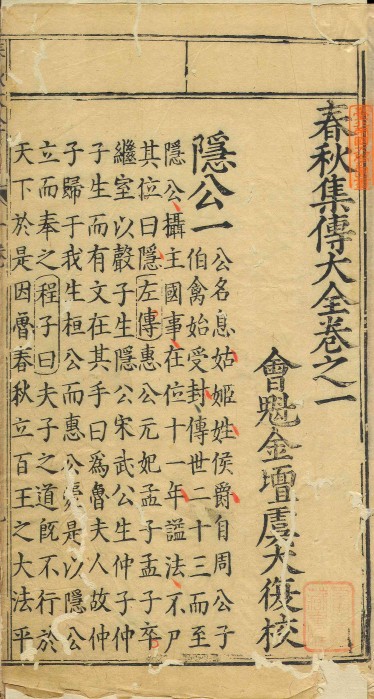 春秋集傳大全卷之一
會魁金壇虞大復校
隱公一 公名息姑姬姓侯爵自周公子
伯禽始受封傳世二十三而至
隱公攝主國事在位十一年謚法不尸
其位曰隱左傳惠公元妃孟子孟子卒
繼室以聲子生隱公宋武公生仲子仲
子生而有文在其手曰為魯夫人故仲
子歸于我生桓公而惠公薨是以隱公
立而奉之程子曰夫子之道既不行於
天下於是因魯春秋立百王之大法平